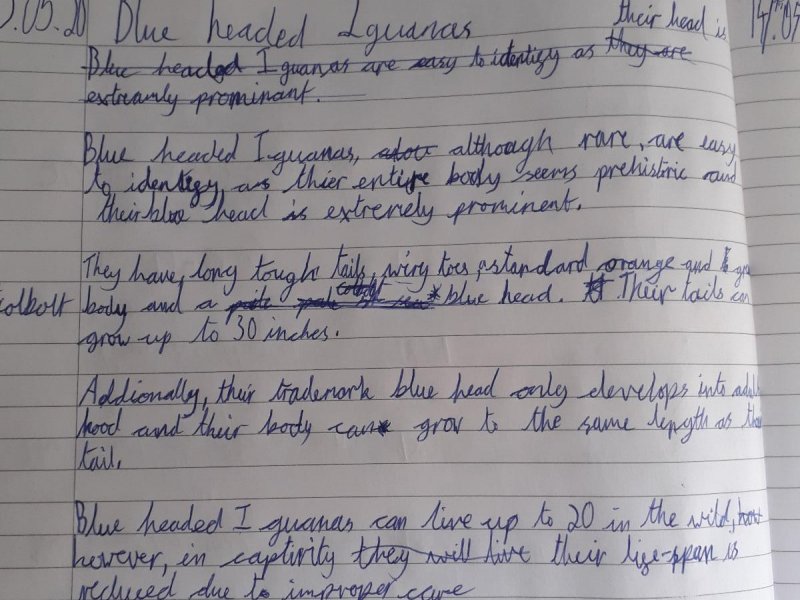 .05.20 Blue headed Iguanas their head is 14/05
Blue headed Iguanas are easy to identify as they are
extreamly prominant.
Blue headed Iguanas, although rare, are easy
to identify as thier entire body seems prehistiric and
their blue head is extremely prominent.
They have, long tough tails, wiry toes, a standard orange and
colbolt body and a * blue head. Their tails can
grow up to 30 inches.
Addionally, their trademark blue head only develops into adult
hood and their body can grow to the same length as their
tail.
Blue headed Iguanas can live up to 20 in the wild,
however, in captivity they will live their life-span is
reduced due to improper care